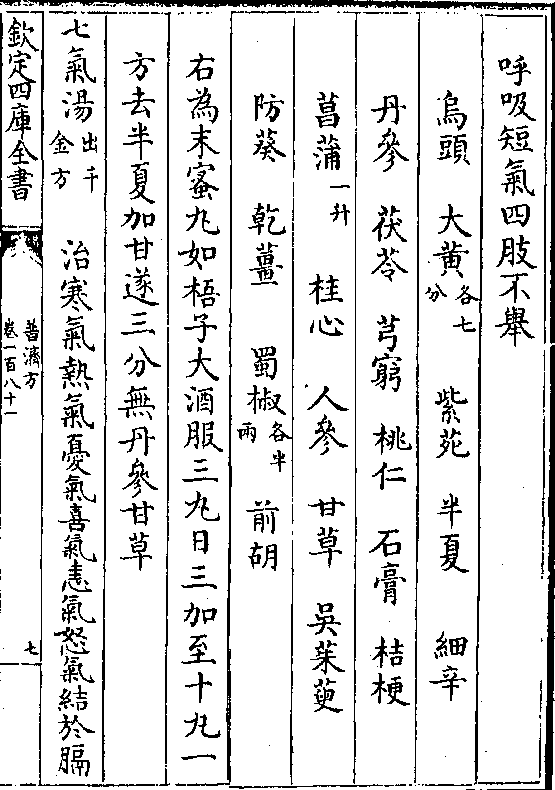 呼吸短氣四肢不舉
烏頭 大黃各七分 紫菀 半夏 細辛
丹參 茯苓 芎窮 桃仁 石膏 桔梗
菖蒲一升 桂心 人參 甘草 吳茱萸
防葵 乾薑 蜀椒各半兩 前胡
右為末蜜丸如梧子大酒服三丸日三加至十丸一
方去半夏加甘遂三分無丹參甘草
七氣湯出千金方 治寒氣熱氣憂氣喜氣恚氣怒氣結於膈
欽定四庫全書 普濟方 卷一百八十一 七